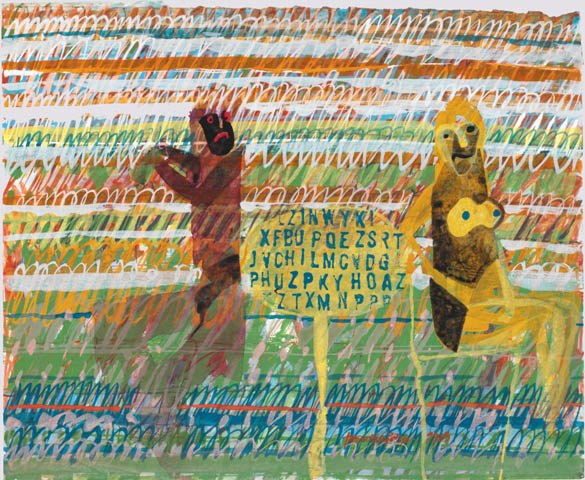 ZINWYKI
XFBUPQEZSRT
JVCHILMCVDG
PHUZPKYHOAZ
ZTXMNPPR